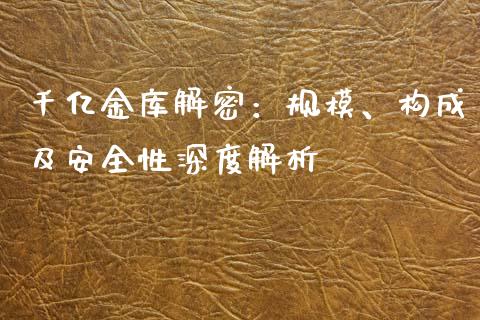 千亿金库解密：规模、构成
及安全性深度解析